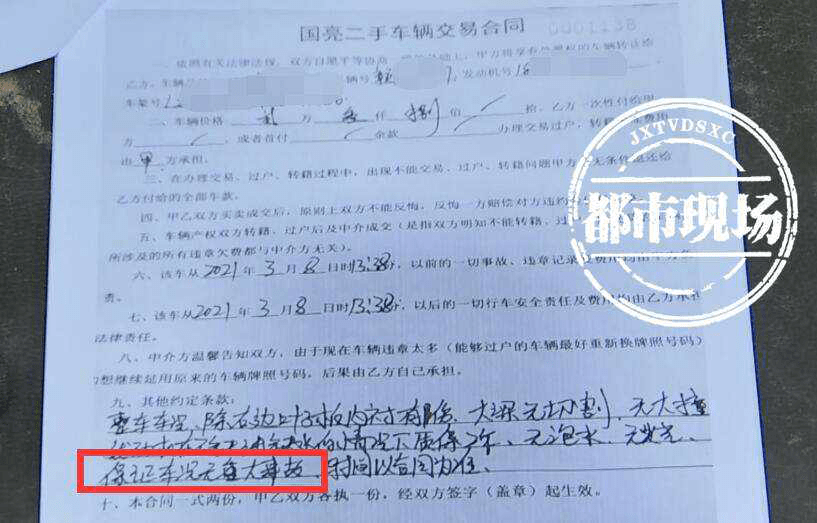 国亮二手车辆交易合同
0001138
一、依照有关法律法规，双方自愿平等协商，甲方将享有处置权的车辆转让给
乙方。车辆 辆号 发动机号
车架号
二、车辆价格 万 仟 捌 佰 拾，乙方一次性付给甲
方 ，或者首付 余款 办理交易过户，转籍
由 甲 方承担。
三、在办理交易、过户、转籍过程中，出现不能交易、过户、转籍问题甲方 无条件退还给
乙方付给的全部车款。
四、甲乙双方买卖成交后，原则上双方不能反悔，反悔一方赔偿对方违约
五、车辆产权双方转籍，过户后及中介成交（是指双方明知不能转籍、过
所涉及的所有违章欠费都与中介方无关）。
六、该车从2021年3月8日时13:38分，以前的一切事故、违章记录及费用均由甲方负
责。
七、该车从2021年3月8日时13:38分，以后的一切行车安全责任及费用均由乙方承担
法律责任。
八、中介方温馨告知双方，由于现在车辆违章太多（能够过户的车辆最好重新换牌照号码）
想继续延用原来的车辆牌照号码，后果由乙方自己承担。
九、其他约定条款：
整车车况，除右边上 板内衬有 ，大梁无切割，无大撞
情况下质保2年、无泡水、无火烧
保证车况无重大事故、时间以合同为准、
十、本合同一式两份，甲乙双方各执一份，经双方签字（盖章）起生效。
JXTVDSXC
都市现场